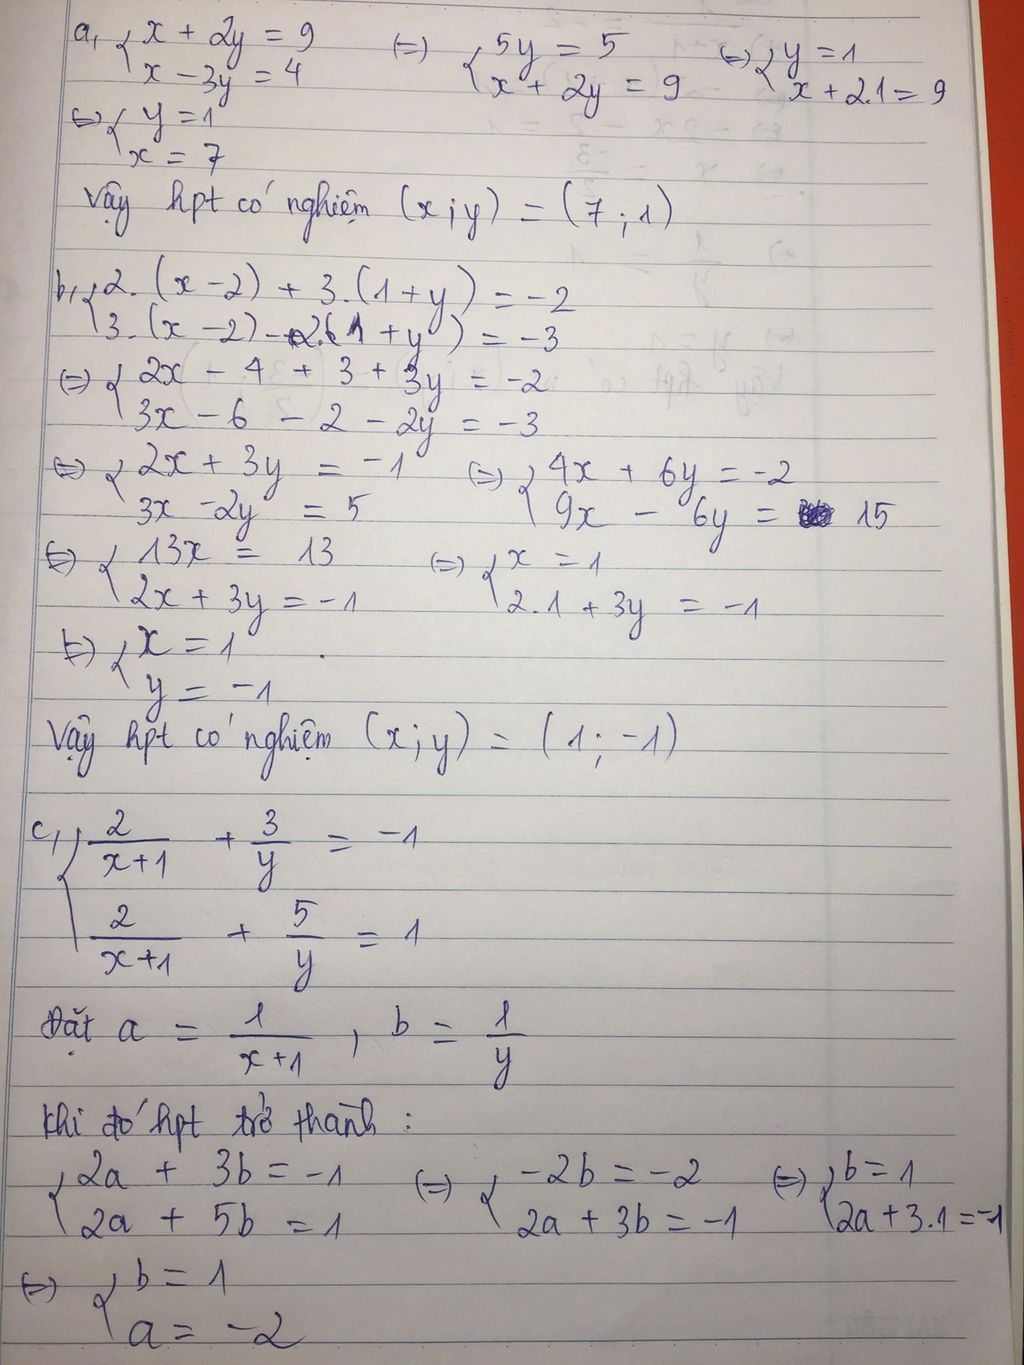 a, { x + 2y = 9 (=) { 5y = 5 (=) { y = 1
x - 3y = 4 x + 2y = 9 x + 2.1 = 9
(=) { y = 1
x = 7
Vậy hpt có nghiệm (x;y) = (7;1)
b, { 2.(x-2) + 3.(1+y) = -2
3.(x-2) - 2.(1+y) = -3
(=) { 2x - 4 + 3 + 3y = -2
3x - 6 - 2 - 2y = -3
(=) { 2x + 3y = -1 (=) { 4x + 6y = -2
3x - 2y = 5 9x - 6y = 15
(=) { 13x = 13 (=) { x = 1
2x + 3y = -1 2.1 + 3y = -1
(=) { x = 1
y = -1
Vậy hpt có nghiệm (x;y) = (1;-1)
c, { 2/(x+1) + 3/y = -1
2/(x+1) + 5/y = 1
Đặt a = 1/(x+1), b = 1/y
Khi đó hpt trở thành:
{ 2a + 3b = -1 (=) { -2b = -2 (=) { b = 1
2a + 5b = 1 2a + 3b = -1 2a + 3.1 = -1
(=) { b = 1
a = -2